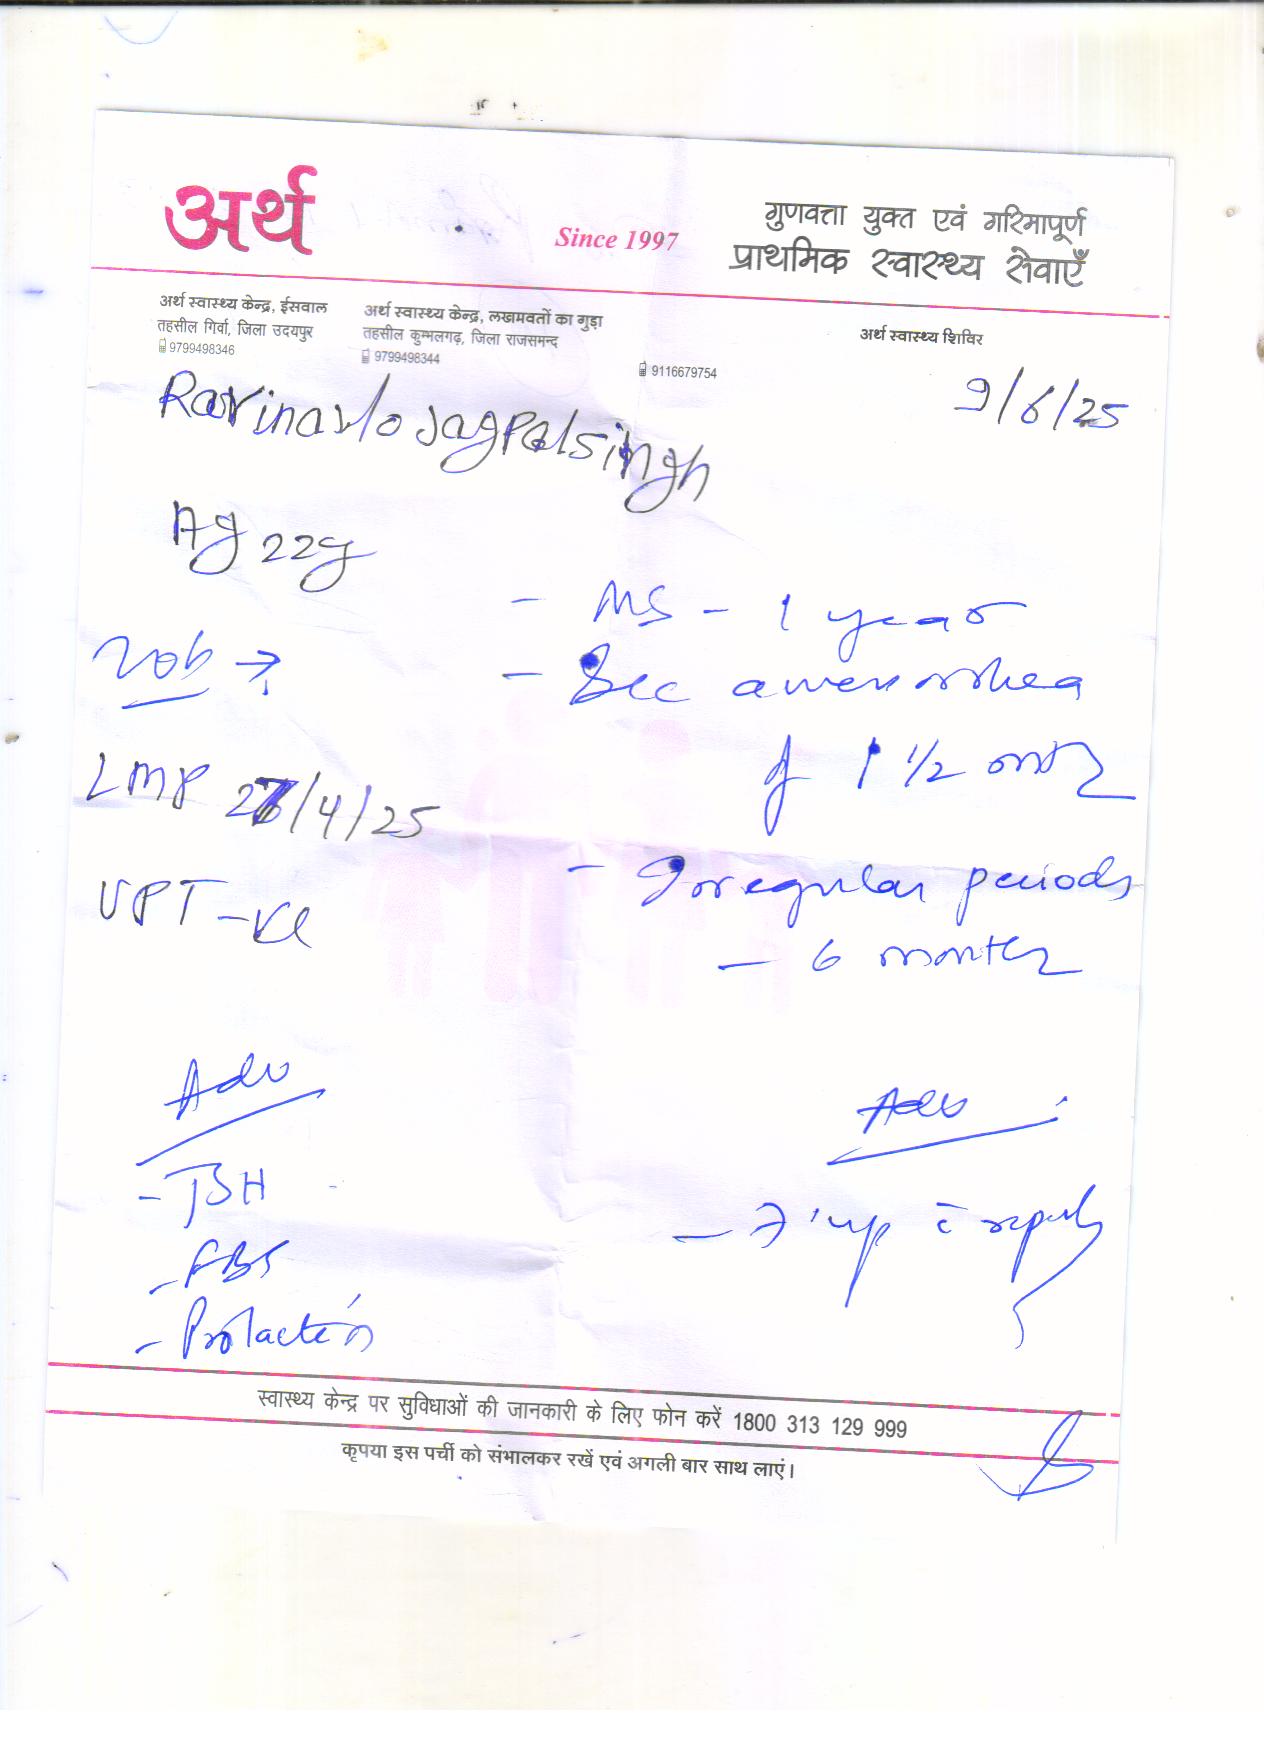 अर्थ
Since 1997
गुणवत्ता युक्त एवं गरिमापूर्ण
प्राथमिक स्वास्थ्य सेवाएँ
अर्थ स्वास्थ्य केन्द्र, ईसवाल
तहसील गिर्वा, जिला उदयपुर
9799498346
अर्थ स्वास्थ्य केन्द्र, लखमवतों का गुड़ा
तहसील कुम्भलगढ़, जिला राजसमन्द
9799498344
9116679754
अर्थ स्वास्थ्य शिविर
9/6/25
Ravina w/o Jagpalsingh
Ag 22y
- MS - 1 year
- Sec amenorrhea
of 1 1/2 mth
LMP 27/4/25
- Irregular periods
- 6 months
UPT -ve
Adv
- TSH
- FBS
- Prolactin
Adv
- F'up c̄ reports
स्वास्थ्य केन्द्र पर सुविधाओं की जानकारी के लिए फोन करें 1800 313 129 999
कृपया इस पर्ची को संभालकर रखें एवं अगली बार साथ लाएं।